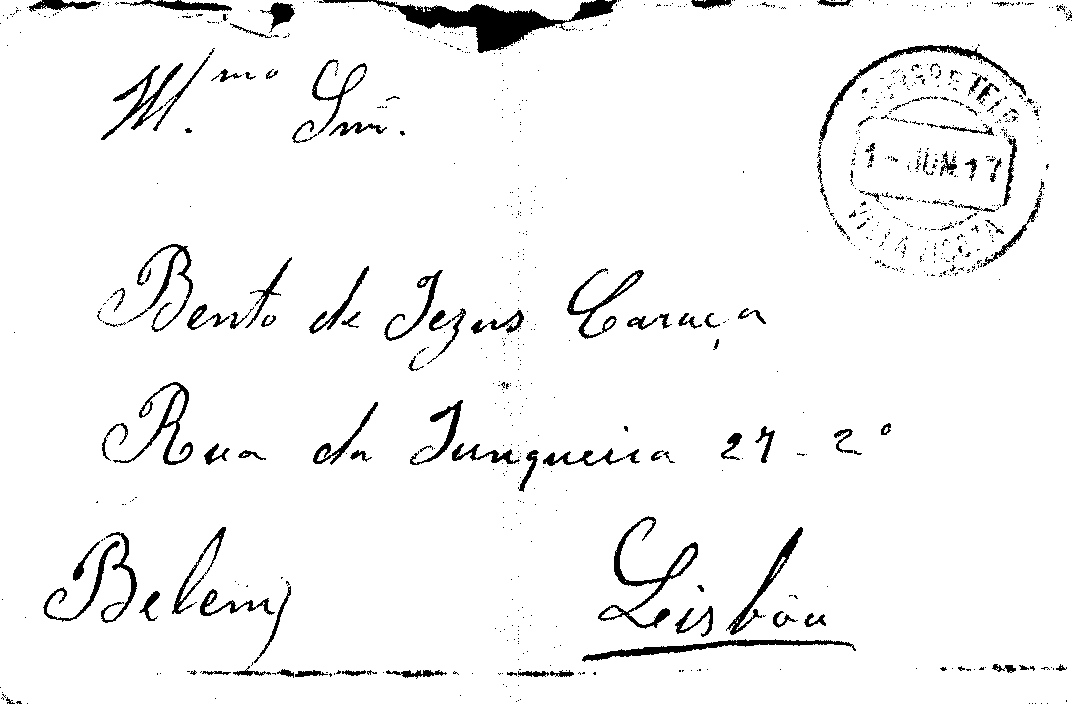 M.mo Snr.
CORREIO E TELEG.
1-JUN.17
VILA VIÇOSA
Bento de Jezus Caraça
Rua da Junqueira 27-2º
Belem
Leisbôa